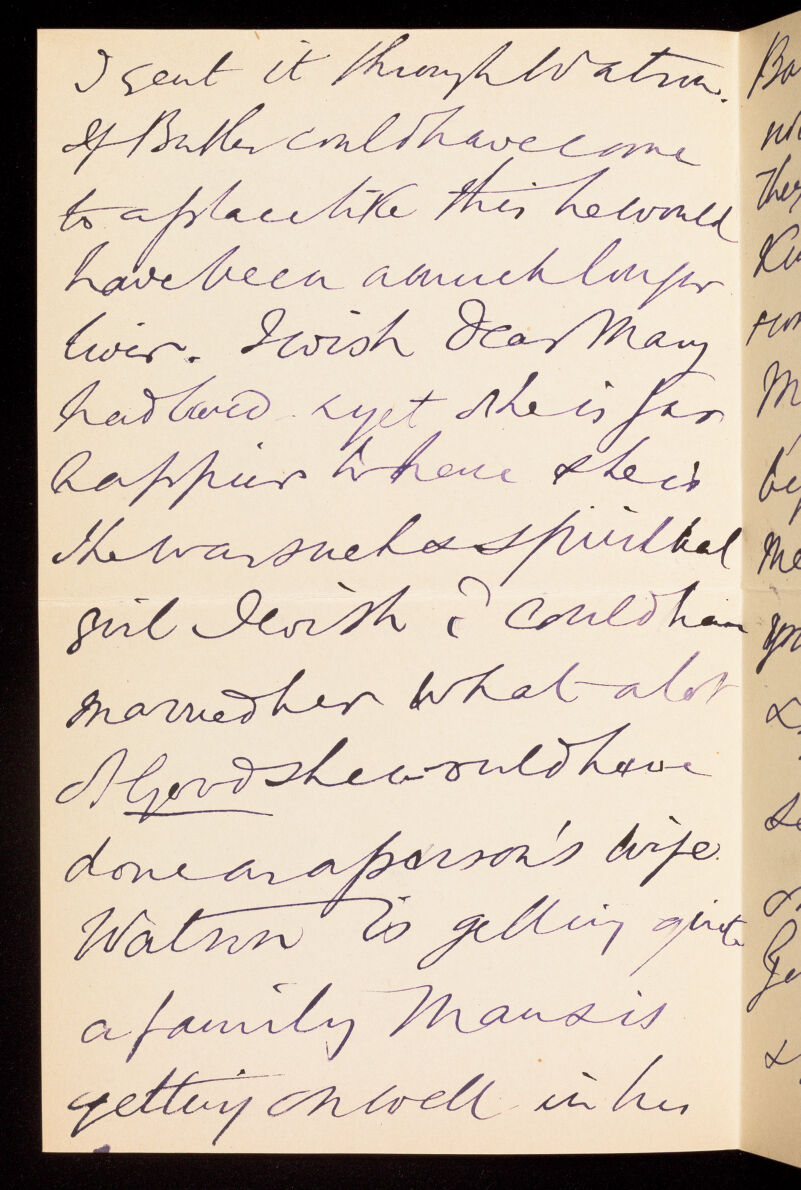 I sent it through Watson.
If Butler could have come
to a place like this he would
have been a much longer
liver. I wish Dear Mary
had lived & yet she is far
happier where she is
She was such a spiritual
girl I wish I could have
married her what a lot
of Good she would have
done as a parson's wife
Watson is getting quite
a family is
getting on well in his